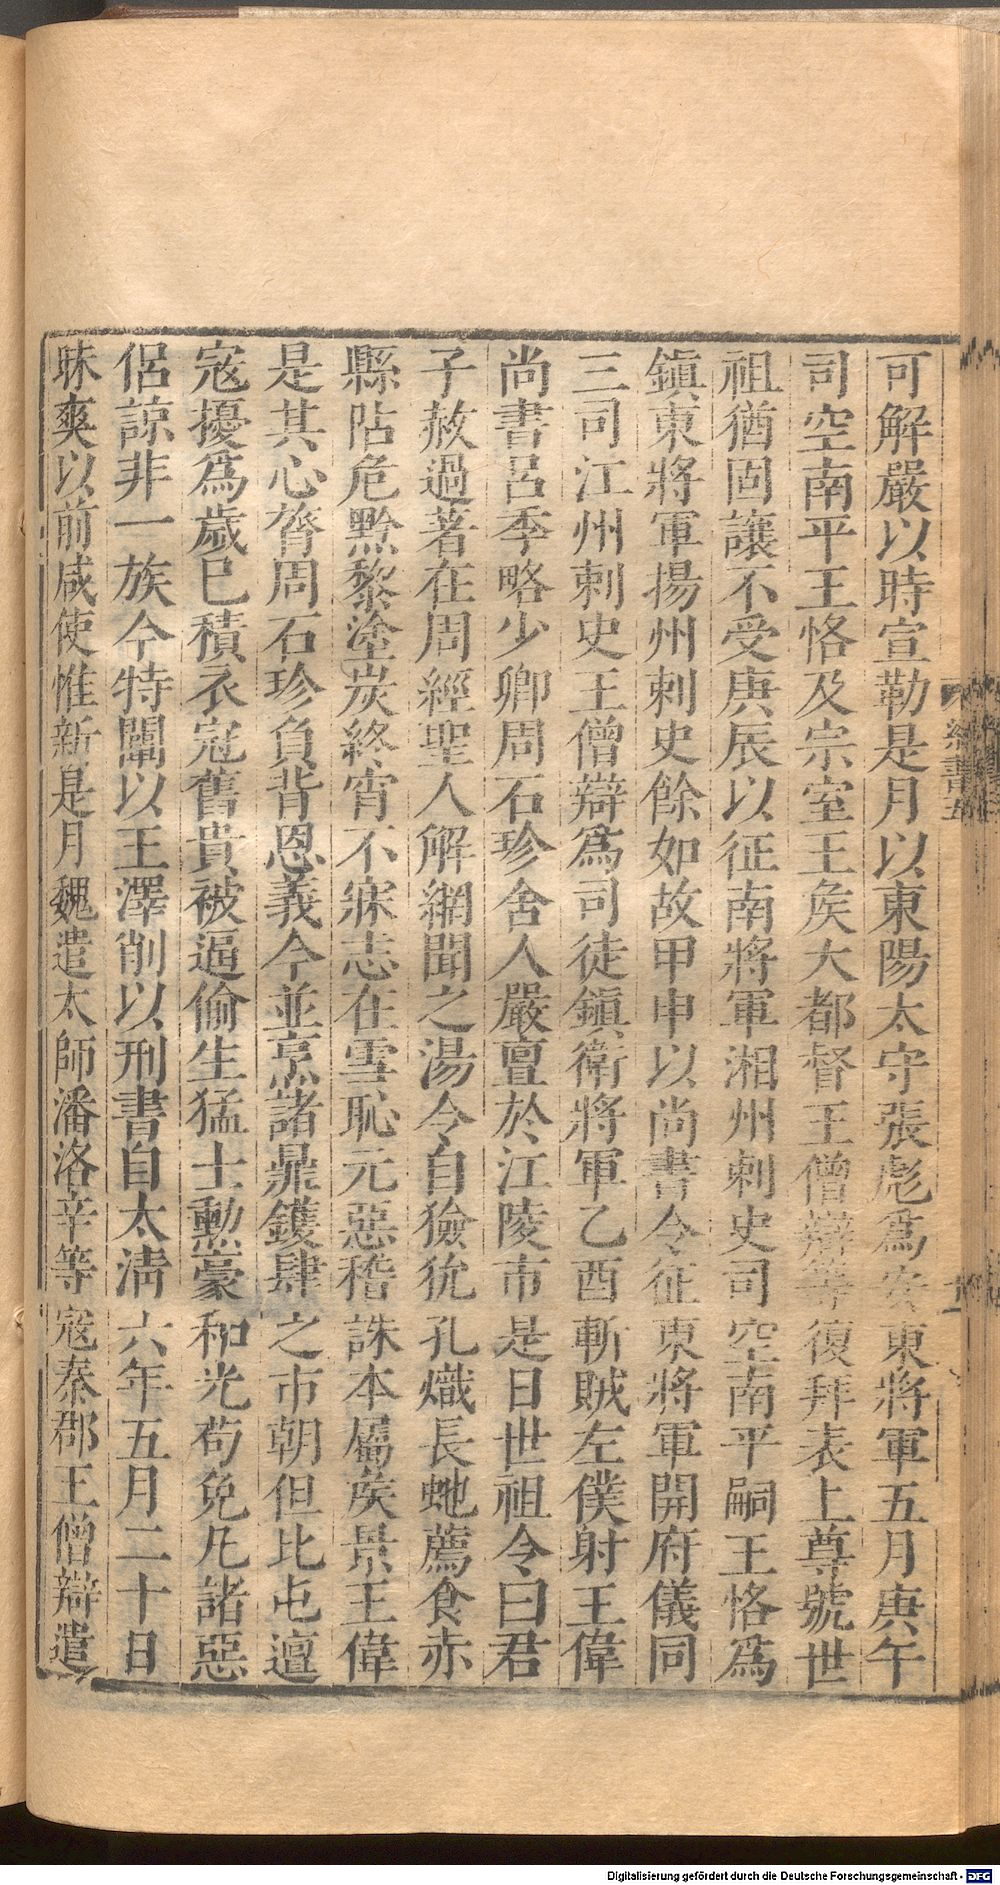 可解嚴以時宣勒是月以東陽太守張彪爲安東將軍五月庚午
司空南平王恪及宗室王矦大都督王僧辯等復拜表上尊號世
祖猶固讓不受庚辰以征南將軍湘州刺史司空南平嗣王恪爲
鎭東將軍揚州刺史餘如故甲申以尚書令征東將軍開府儀同
三司江州刺史王僧辯爲司徒鎭衛將軍乙酉斬賊左僕射王偉
尚書呂季略少卿周石珍舍人嚴亶於江陵市是日世祖令曰君
子赦過著在周經聖人解網聞之湯令自獫狁孔熾長虵薦食赤
縣阽危黔黎塗炭終宵不寐志在雪恥元惡稽誅本屬矦景王偉
是其心膂周石珍負背恩義今並烹諸鼎鑊肆之市朝但比屯邅
寇擾爲歲巳積衣冠舊貴被逼偷生猛士勲豪和光苟免凡諸惡
侶諒非一族今特闡以王澤削以刑書自太清六年五月二十日
昧爽以前咸使惟新是月魏遣太師潘洛辛等寇秦郡王僧辯遣